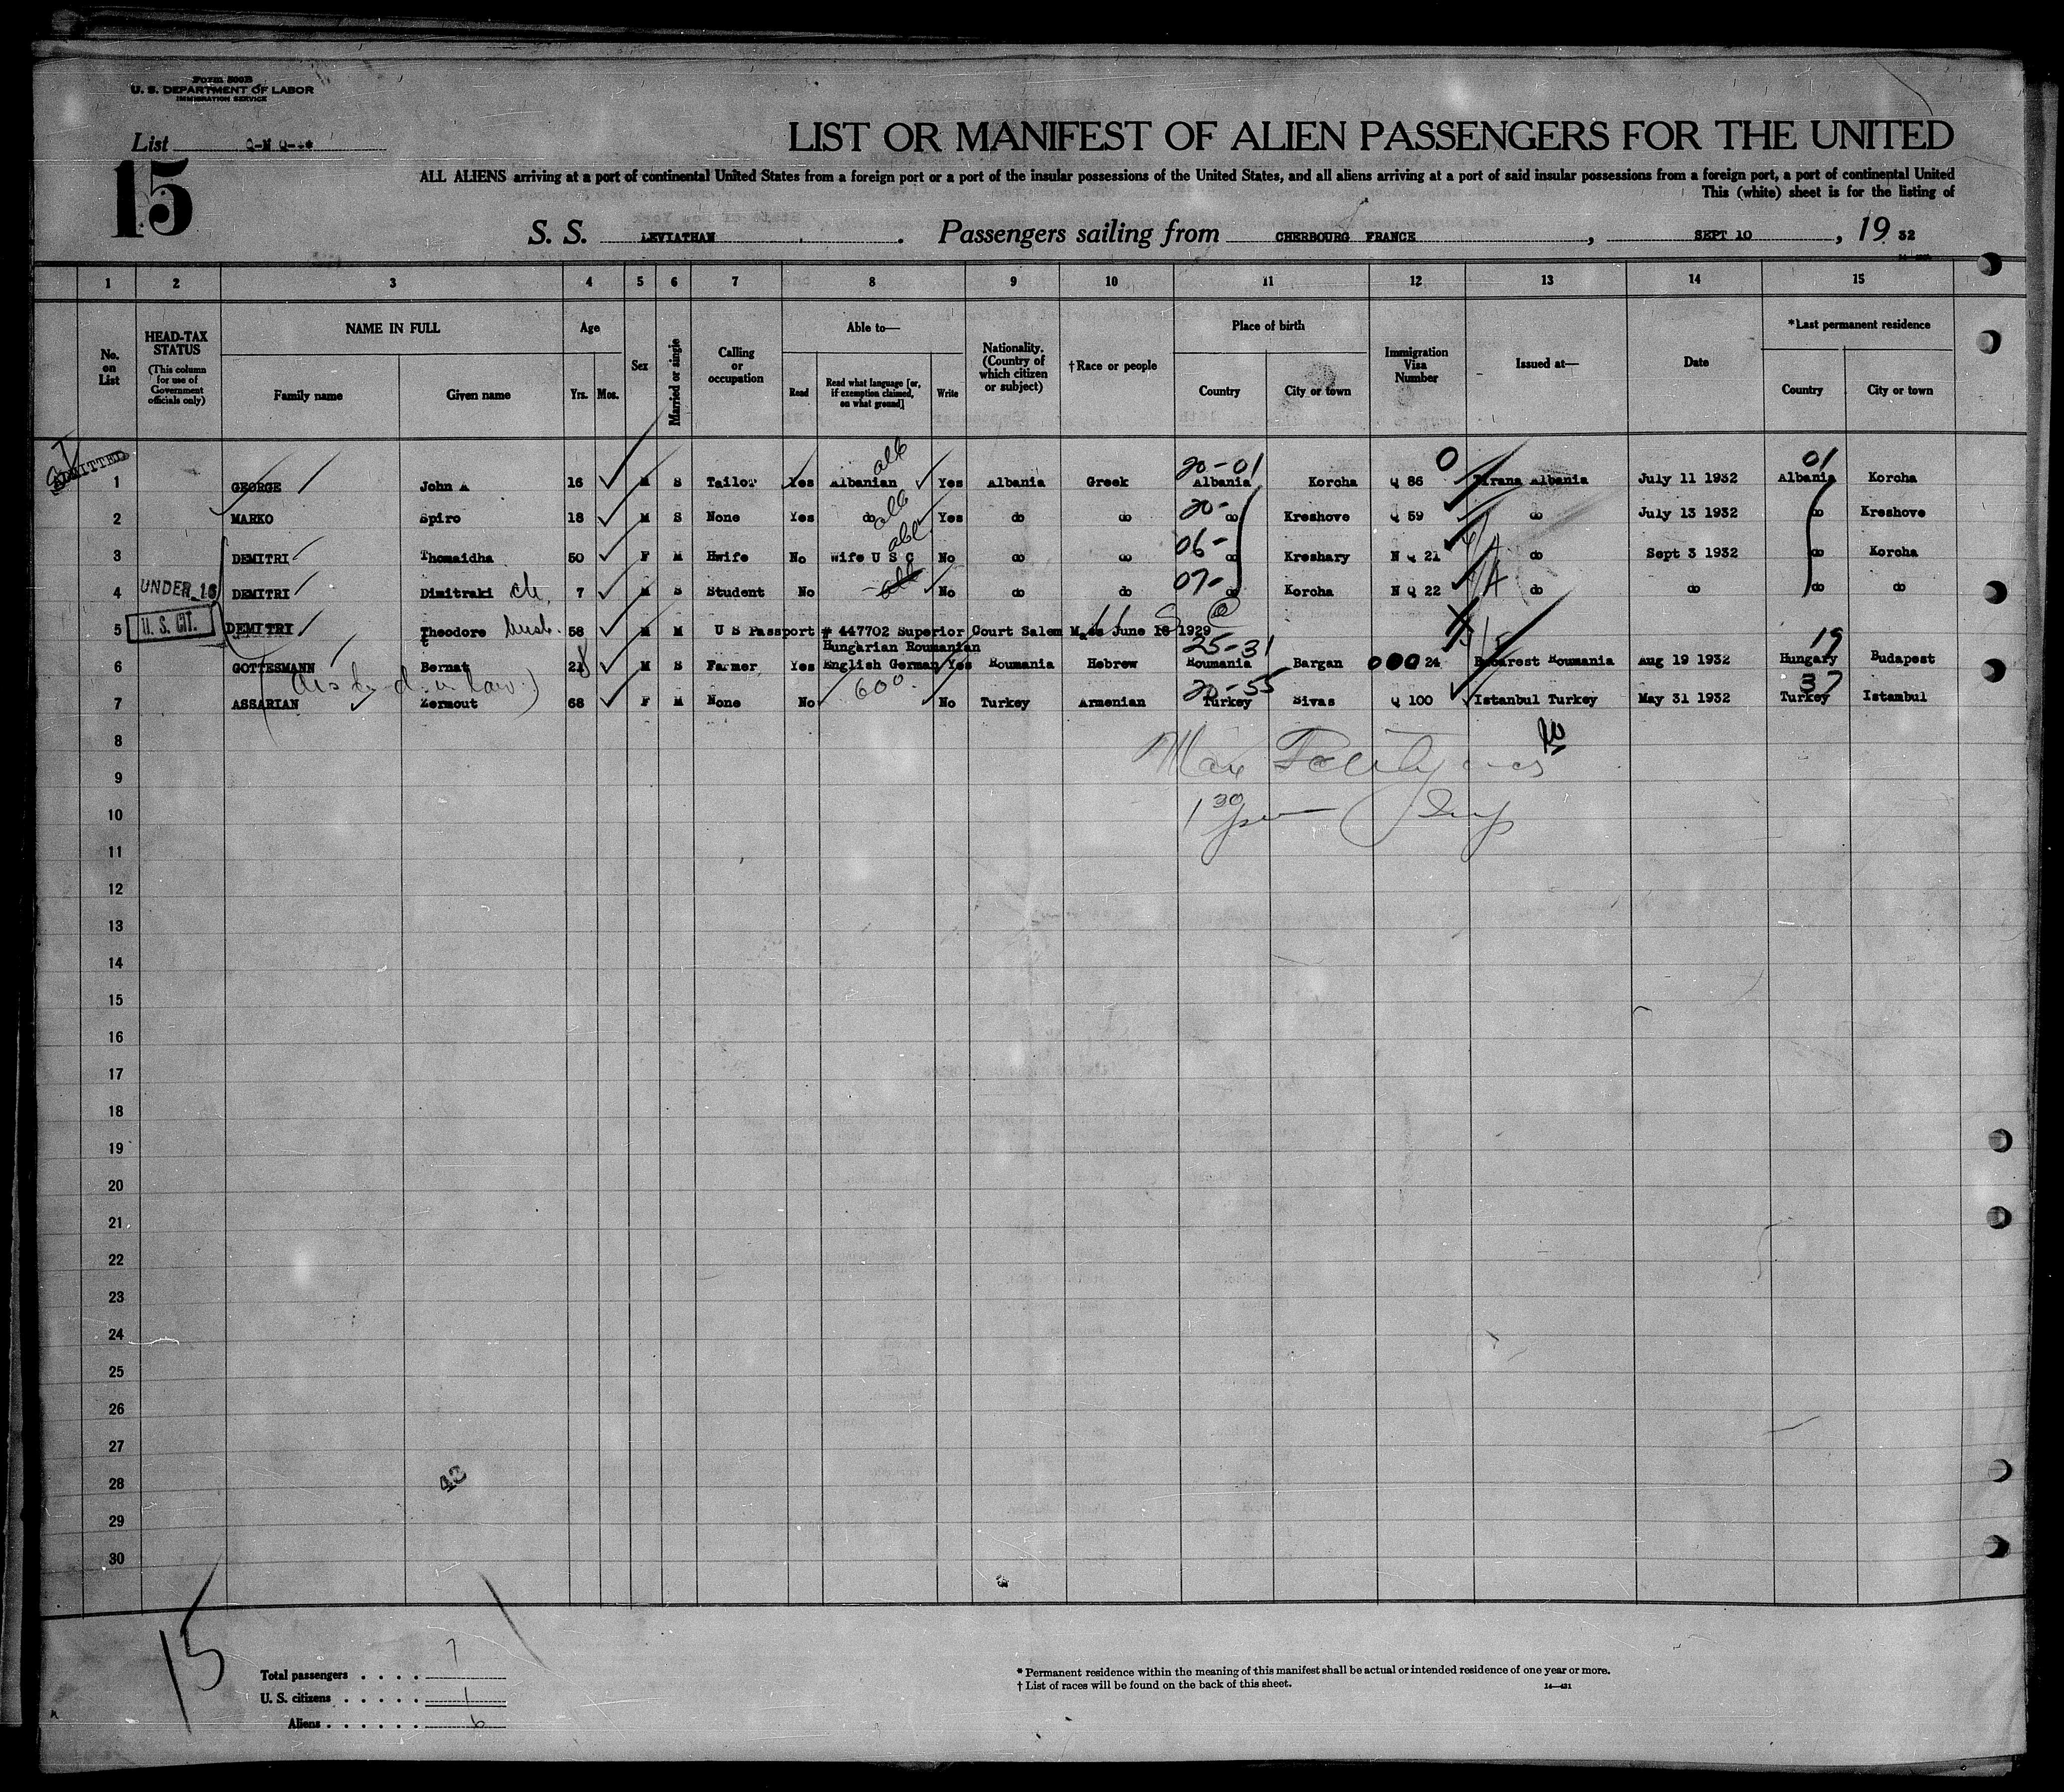 Form 500B
U. S. DEPARTMENT OF LABOR
IMMIGRATION SERVICE
List
15
LIST OR MANIFEST OF ALIEN PASSENGERS FOR THE UNITED
ALL ALIENS arriving at a port of continental United States from a foreign port or a port of the insular possessions of the United States, and all aliens arriving at a port of said insular possessions from a foreign port, a port of continental United
This (white) sheet is for the listing of
S. S. LEVIATHAN . Passengers sailing from CHERBOURG FRANCE , SEPT 10 , 19 32
1 2 3 4 5 6 7 8 9 10 11 12 13 14 15
No. on List
HEAD-TAX STATUS (This column for use of Government officials only)
NAME IN FULL Family name Given name
Age Yrs. Mos.
Sex
Married or single
Calling or occupation
Able to— Read Read what language [or, if exemption claimed, on what ground] Write
Nationality. (Country of which citizen or subject)
†Race or people
Place of birth Country City or town
Immigration Visa Number
Issued at—
Date
*Last permanent residence Country City or town
ADMITTED
alb 20-01 0 01
1 GEORGE John A 16 M S Tailor Yes Albanian Yes Albania Greek Albania Korcha Q 86 Tirana Albania July 11 1932 Albania Korcha
alb 20-
2 MARKO Spiro 18 M S None Yes do Yes do do do Kreshove Q 59 do July 13 1932 do Kreshove
alb 06-
3 DEMITRI Thomaidha 50 F M Hwife No Wife U S C No do do do Kreshary N Q 21 do Sept 3 1932 do Korcha
UNDER 16 alb 07-
4 DEMITRI Dimitraki ch. 7 M S Student No No do do do Korcha N Q 22 do do do do
U. S. CIT.
5 DEMITRI Theodore husb. 58 M M U S Passport # 447702 Superior Court Salem Mass June 18 1929
Hungarian Roumanian 25-31 19
6 GOTTESMANN Bernat 21 M S Farmer Yes English German Yes Roumania Hebrew Roumania Bargan 24 Bucarest Roumania Aug 19 1932 Hungary Budapest
600 20-55 37
7 ASSARIAN Zermout 68 F M None No No Turkey Armenian Turkey Sivas Q 100 Istanbul Turkey May 31 1932 Turkey Istambul
8
9
10
11
12
13
14
15
16
17
18
19
20
21
22
23
24
25
26
27
28
29
30
15
Total passengers . . . . 7
U. S. citizens . . . . . 1
Aliens . . . . . . 6
* Permanent residence within the meaning of this manifest shall be actual or intended residence of one year or more.
† List of races will be found on the back of this sheet.
14—431